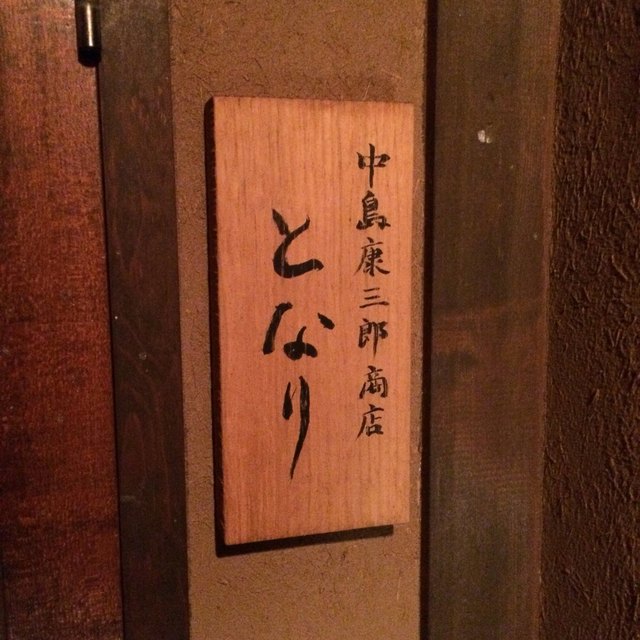 中島康三郎商店
となり